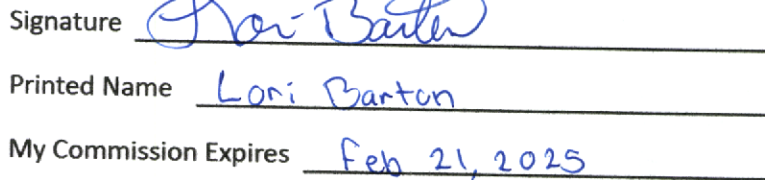 Signature Lori Barton
Printed Name Lori Barton
My Commission Expires Feb 21, 2025